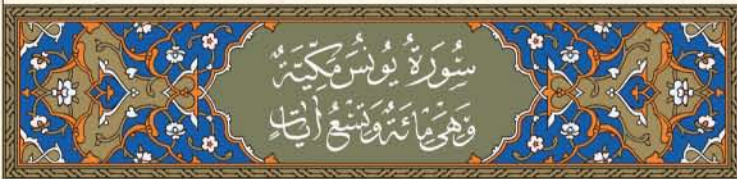 سُورَةُ يُونُسَ مَكِّيَّةٌ
وَهِيَ مِائَةٌ وَتِسْعُ اٰيَاتٍ